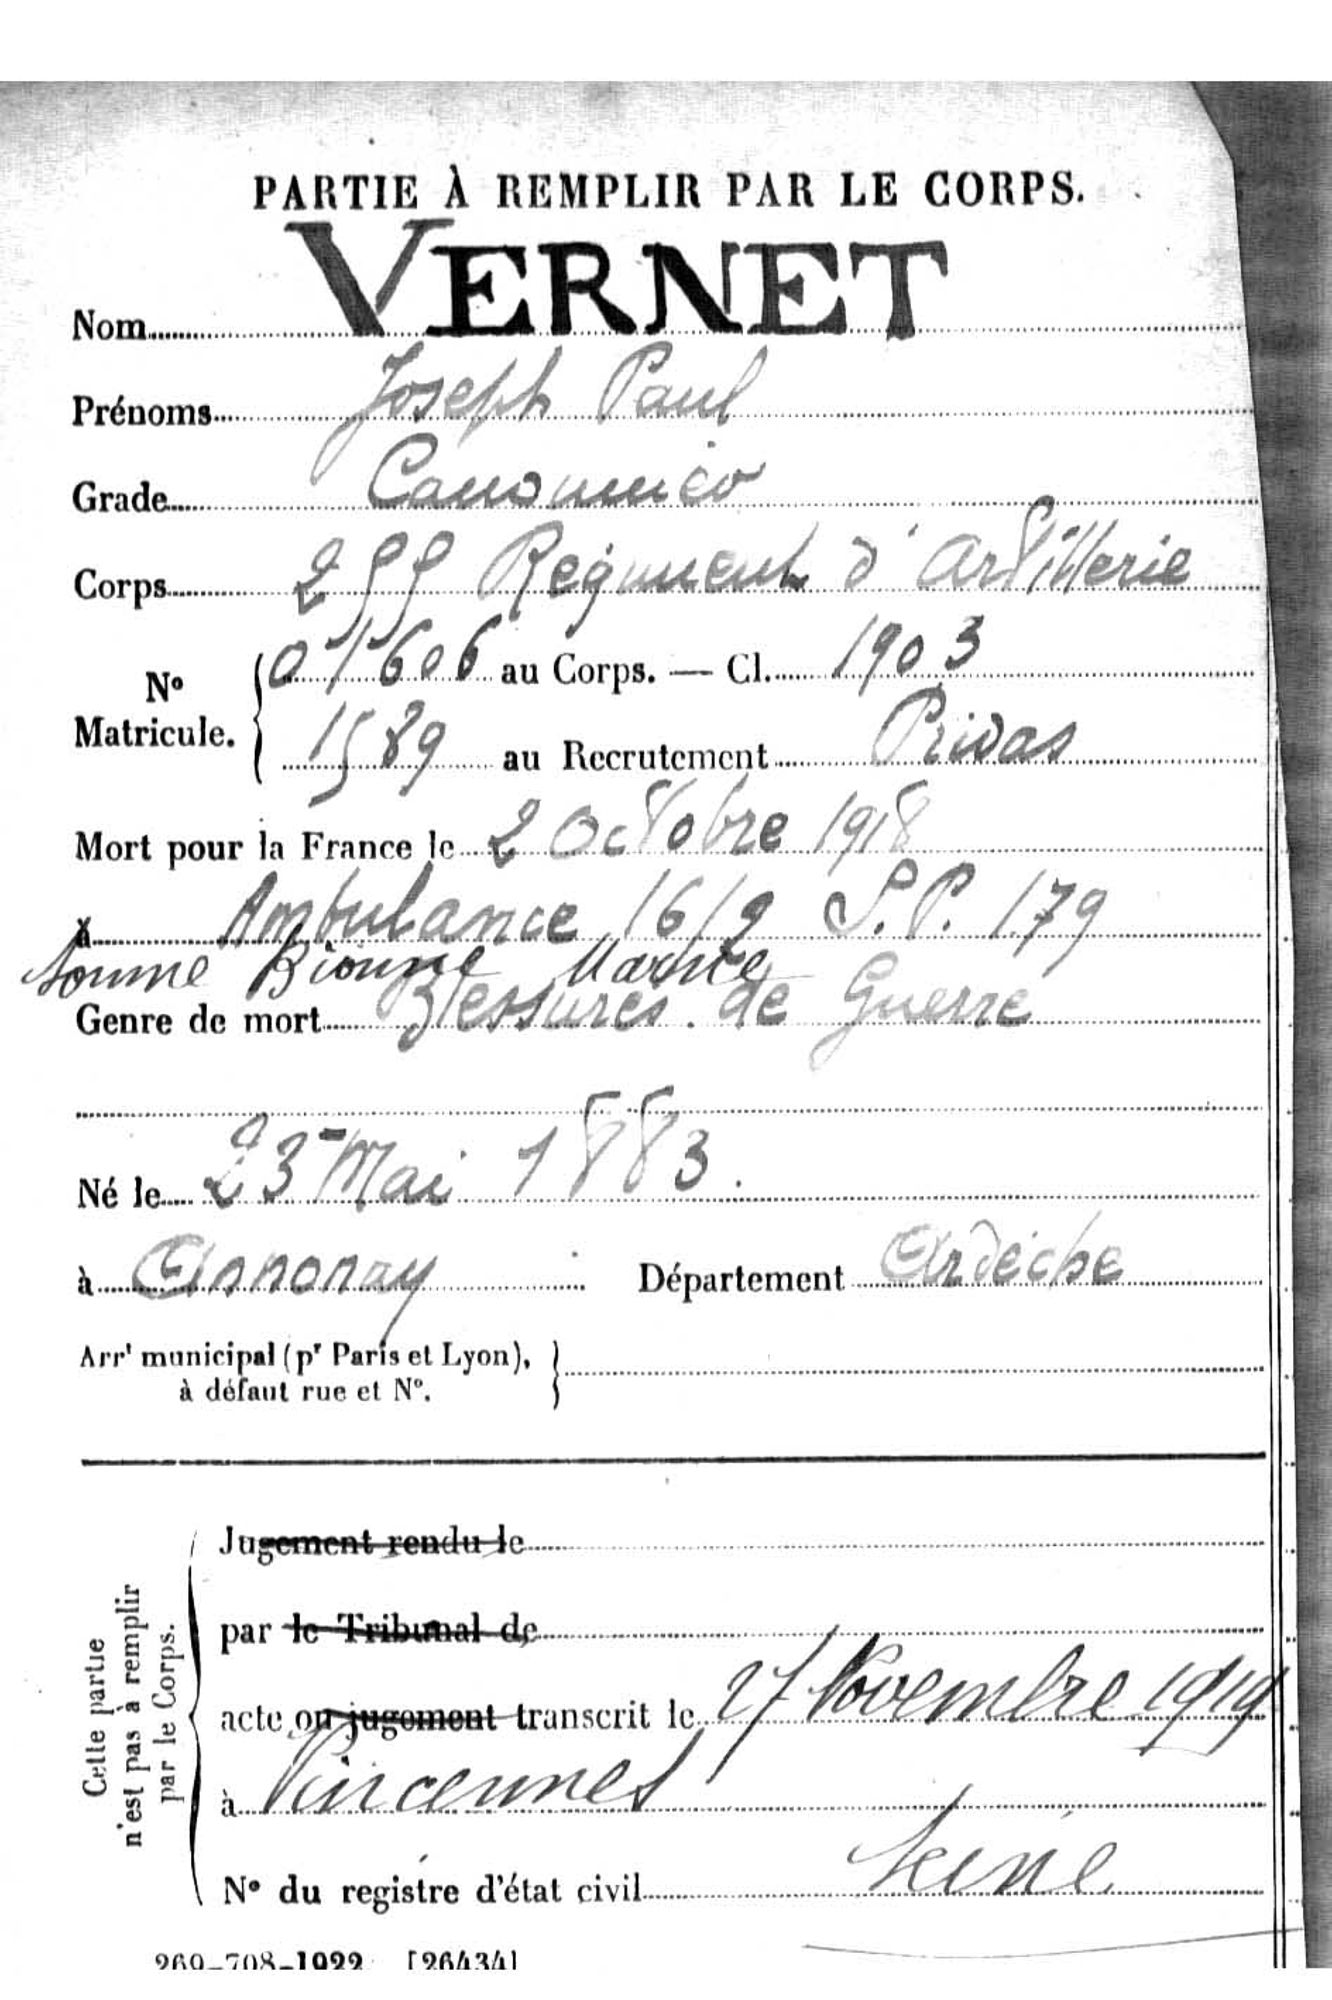 PARTIE À REMPLIR PAR LE CORPS.
Nom VERNET
Prénoms Joseph Paul
Grade Canonnier
Corps 255 Régiment d'Artillerie
Nº Matricule. { 01606 au Corps. — Cl. 1903
1589 au Recrutement Privas
Mort pour la France le 2 Octobre 1918
à Ambulance 16/2 S.P. 179
Somme Bionne Marne
Genre de mort Blessures de Guerre
Né le 23 Mai 1883.
à Annonay Département Ardèche
Arrt municipal (pr Paris et Lyon),
à défaut rue et Nº.
Cette partie
n'est pas à remplir
par le Corps.
Jugement rendu le
par le Tribunal de
acte ou jugement transcrit le 27 Novembre 1919
à Vincennes
Seine
Nº du registre d'état civil
269-708-1922. [26434]